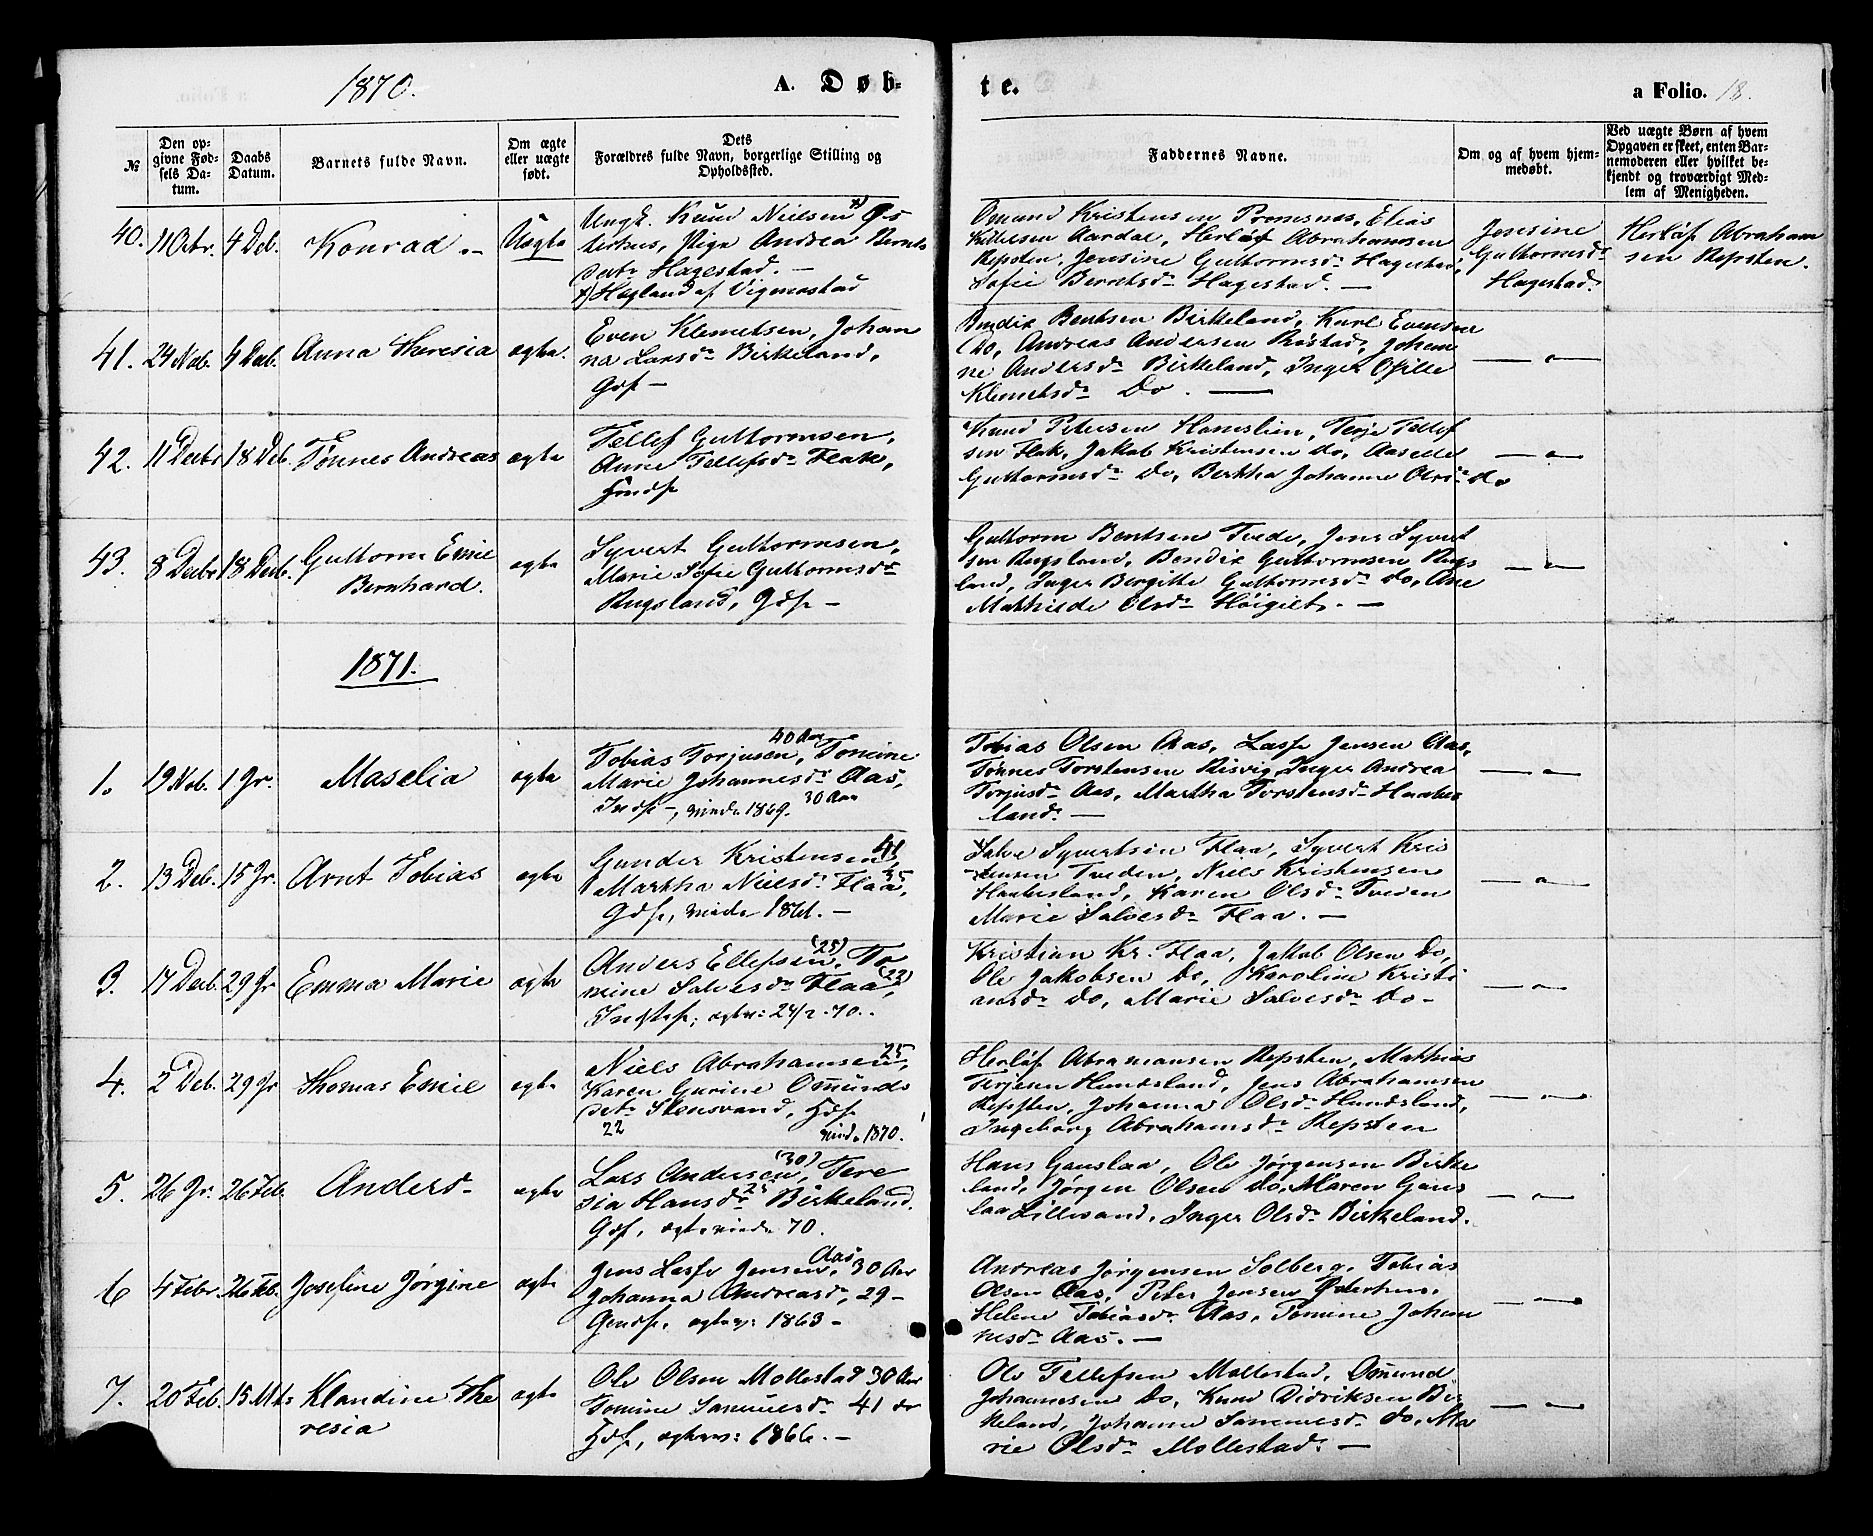 1870.
A. Døb-
te.
a Folio. 18.
№
Den opgivne Fødsels Datum.
Daabs Datum.
Barnets fulde Navn.
Om ægte eller uægte født.
Dets Forældres fulde Navn, borgerlige Stilling og Opholdssted.
Faddernes Navne.
Om og af hvem hjemmedøbt.
Ved uægte Børn af hvem Opgaven er skeet, enten Barnemoderen eller hvilket bekjendt og troværdigt Medlem af Menigheden.
40. 11 Octbr. 4 Deb. Konrad.– Uægte
Ungk. Knud Nielsen x)
Pige Andrea Bernts
datr Hagestad. –
x) Hægland af Vigmostad
Omund Kristensen Elias
Kittelsen Aardal, Herlof Abrahamsen
Repsten, Jensine Guttormsdr Hagestad,
Sofie Berntsdr Hagestad. –
Jensine
Guttormsdr
Hagestad.
Herlof Abraham
sen Repsten.
41. 24 Nob. 4 Decb. Anna Theresia ægte.
Even Klemetsen, Johan
ne Larsdr Birkeland,
Gdf –
Bendix Bentsen Birkeland, Karl Evensen
Do, Andreas Andersen Johan
ne Andersdr Birkeland, Inger
Klemetsdr Do. –
– „ –
42. 11 Decbr 18 Deb. Tønnes Andreas ægte
Tellef Guttormsen,
Anne Tellefsdr Flak,
Knud Petersen Homelien, Terje Tellef
sen Flak, Jakob Kristensen do, Aasille
Guttormsdr Do, Berthe Johanne Olsdr do
– „ –
43. 8 Decbr 18 Decb. Guttorm Emil
Bernhard. ægte
Syvert Guttormsen,
Marie Sofie Guttormsdr
Rugsland, Gdf –
Guttorm Bentsen Tvede, Jens Syvert
sen Rugsland, Bendix Guttormsen Rugs
land, Inger Bergitte Guttormsdr do, Ane
Mathilde Olsdr Høigilt. –
– „ –
1871.
1. 19 Nob. 1 Jr. Maselia ægte
40 Aar
Tobias Torjusen, Tomine
Marie Johannesdr Aas,
Indf –, viede 1869. 30 Aar
Tobias Olsen Aas, Lasse Jensen Aas,
Tønnes Torstensen Risvig, Inger Andrea
Torjusdr Aas, Martha Torstensdr Haabes
land. –
– „ –
2. 13 Deb. 15 Jr. Arnt Tobias ægte
Gunder Kristensen, 41
Martha Nielsdr Flaa, 35
Gdf, viede 1861. –
Salve Syvertsen Flaa, Syvert Kris
tensen Tveden, Niels Kristensen
Haabesland, Karen Olsdr Tveden
Marie Salvesdr Flaa. –
– „ –
3. 17 Decb. 29 Jr Emma Marie ægte
Anders Ellefsen (25), To
mine Salvesdr Flaa, (23)
Indstf, ægtev: 24/2 70.
Kristian Kr. Flaa, Jakob Olsen Do,
Ole Jakobsen Do, Karoline Kristi
ansdr do, Marie Salvesdr do –
– „ –
4. 2 Deb. 29 Jr Thomas Emil ægte
Niels Abrahamsen, 25
Karen Gurine Omunds
datr Stensvand, Hdf
22 viede 1870.
Herlof Abramansen Repsten, Mathias
Terjesen Hundsland, Jens Abrahamsen
Repsten, Johanna Olsdr Hundsland,
Ingeborg Abrahamsdr Repsten
– „ –
5. 26 Jr. 26 Feb. Anders – ægte
Lars Andersen (30), Tere
sia Hansdr Birkeland.
Gdf, ægteviede 70.
Hans Gauslaa, Ole Jørgensen Birke
land, Jørgen Olsen Do, Maren Gaus
laa Lillesand, Inger Olsdr Birkeland.
– „ –
6 4 Febr. 26 Feb. Josefine Jørgine ægte
Jens Lasse Jensen, Aas 30 Aar
Johanna Andreasdr, 29 –
Gdf, ægtev: 1863 –
Andreas Jørgensen Solberg, Tobias
Olsen Aas, Peter Jensen
Helene Tobiasdr Aas, Tomine Johan
nesdr Aas. –
– „ –
7. 20 Feb. 15 Mts Klandine The
resia ægte
Ole Olsen Mollestad 30 Aar
Tomine Samuelsdr 41 do
Hdf, ægtev: 1866. –
Ole Tellefsen Mollestad, Omund
Johannsen Do, Knud Didriksen Bir
keland, Johanne Sammesdr do, Ma
rie Olsdr Mollestad. –
– „ –